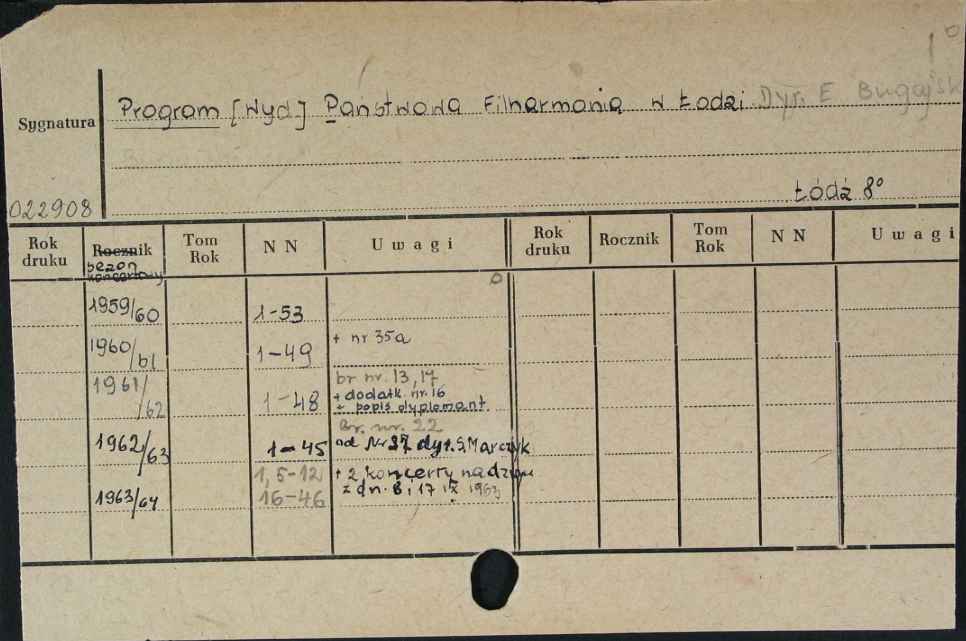 Program [Wyd] Państwowa Filharmonia w Łodzi. Dyr. E Bugajsk
Sygnatura
022908
Łódź 8°
Rok druku Rocznik Tom Rok N N Uwagi Rok druku Rocznik Tom Rok N N Uwagi
Sezon koncertowy
1959/60 1-53
1960/61 1-49 + nr 35a
1961/62 1-48 br nr. 13, 17
+ dodatk. nr. 16
+ popis dyplomant.
Br. nr. 22
1962/63 1-45 od Nr 37 dyr. S. Marczyk
1, 5-12 + 2 koncerty nadzw
1963/64 16-46 z dn. 8 i 17 IX 1963